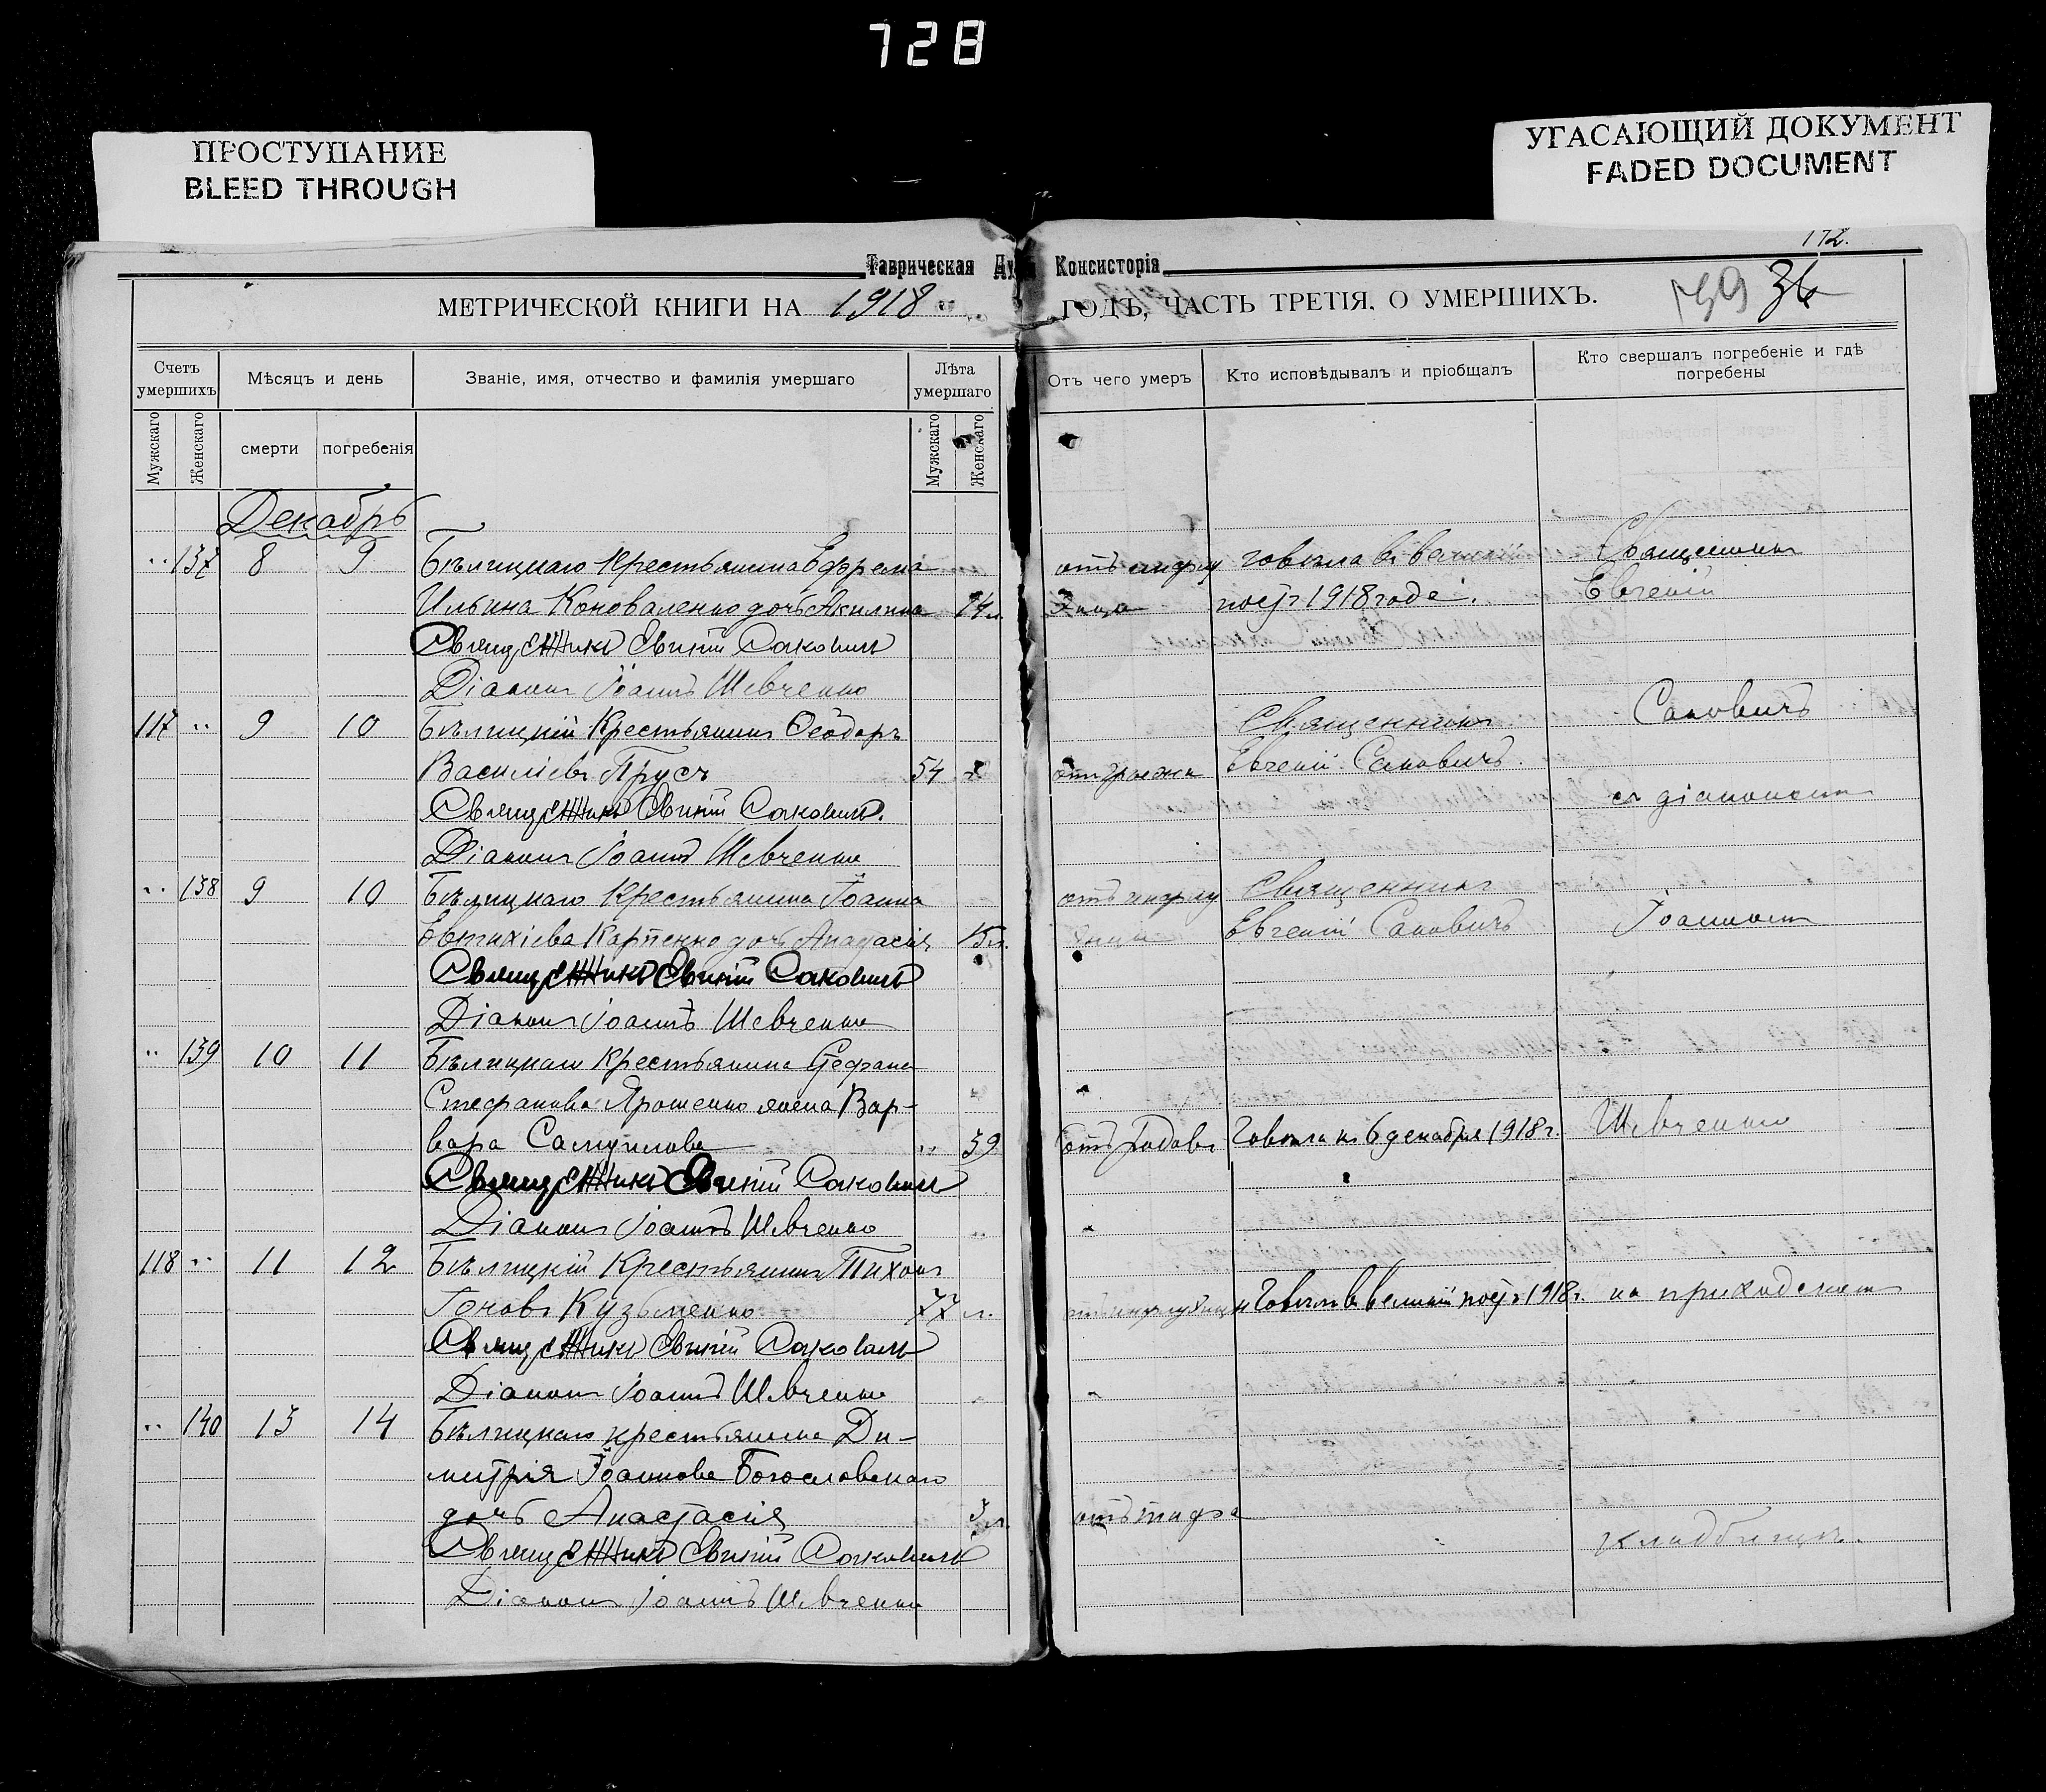 728
ПРОСТУПАНИЕ
BLEED THROUGH
УГАСАЮЩИЙ ДОКУМЕНТ
FADED DOCUMENT
172.
Таврическая Дух Консисторія
МЕТРИЧЕСКОЙ КНИГИ НА 1918 ГОДЪ, ЧАСТЬ ТРЕТІЯ. О УМЕРШИХЪ.
159 36
Счетъ умершихъ
Мѣсяцъ и день
Званіе, имя, отчество и фамилія умершаго
Лѣта умершаго
Отъ чего умеръ
Кто исповѣдывалъ и пріобщалъ
Кто свершалъ погребеніе и гдѣ погребены
Мужскаго
Женскаго
смерти
погребенія
Мужскаго
Женскаго
Декабрь
137 8 9 Бѣлицкаго Крестьянина Ефрема отъ инфлу говѣла въ великій Священникъ
Ильина Коноваленко дочь Акилина 14 л. энца постъ 1918 года. Евгеній
Священникъ Евгеній Саковичъ
Діаконъ Іоаннъ Шевченко
117 9 10 Бѣлицкій Крестьянинъ Ѳеодоръ Священникъ Саковичъ
Василіевъ Прусъ 54 г. Евгеній Саковичъ.
Священникъ Евгеній Саковичъ. съ діакономъ
Діаконъ Іоаннъ Шевченко
138 9 10 Бѣлицкаго Крестьянина Іоанна отъ инфлу Священникъ
Евтихіева Карпенко дочь Анастасія 15 л. энцы Евгеній Саковичъ Іоанномъ
Священникъ Евгеній Саковичъ
Діаконъ Іоаннъ Шевченко
139 10 11 Бѣлицкаго Крестьянина Стефана
Стефанова Ярошенко жена Вар-
вара Самуилова 39 отъ родовъ Говѣла къ 6 декабря 1918 г. Шевченко
Священникъ Евгеній Саковичъ
Діаконъ Іоаннъ Шевченко
118 11 12 Бѣлицкій Крестьянинъ Тихонъ
Кузьменко 77 л. отъ инфлуэнцы Говѣлъ въ великій постъ 1918 г. на приходскомъ
Священникъ Евгеній Саковичъ
Діаконъ Іоаннъ Шевченко
140 13 14 Бѣлицкаго крестьянина Ди-
митрія Іоаннова Богословскаго
дочь Анастасія 3 л. отъ тифа
Священникъ Евгеній Саковичъ кладбищѣ.
Діаконъ Іоаннъ Шевченко